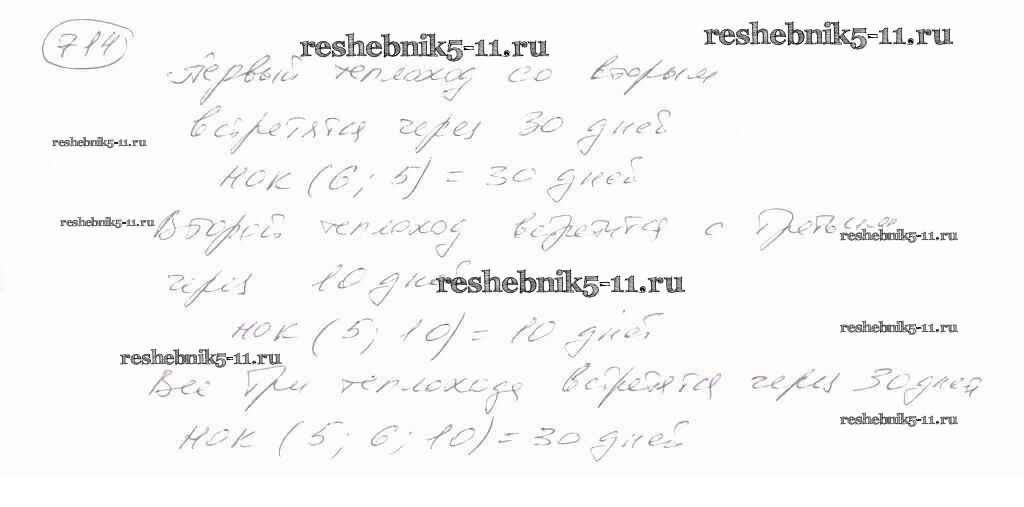 714
reshebnik5-11.ru
reshebnik5-11.ru
Первый теплоход со вторым
встретятся через 30 дней
reshebnik5-11.ru
НОК (6; 5) = 30 дней
reshebnik5-11.ru
Второй теплоход встретится с третьим
reshebnik5-11.ru
через 10 дней
reshebnik5-11.ru
НОК (5; 10) = 10 дней
reshebnik5-11.ru
reshebnik5-11.ru
Все три теплохода встретятся через 30 дней
reshebnik5-11.ru
НОК (5; 6; 10) = 30 дней